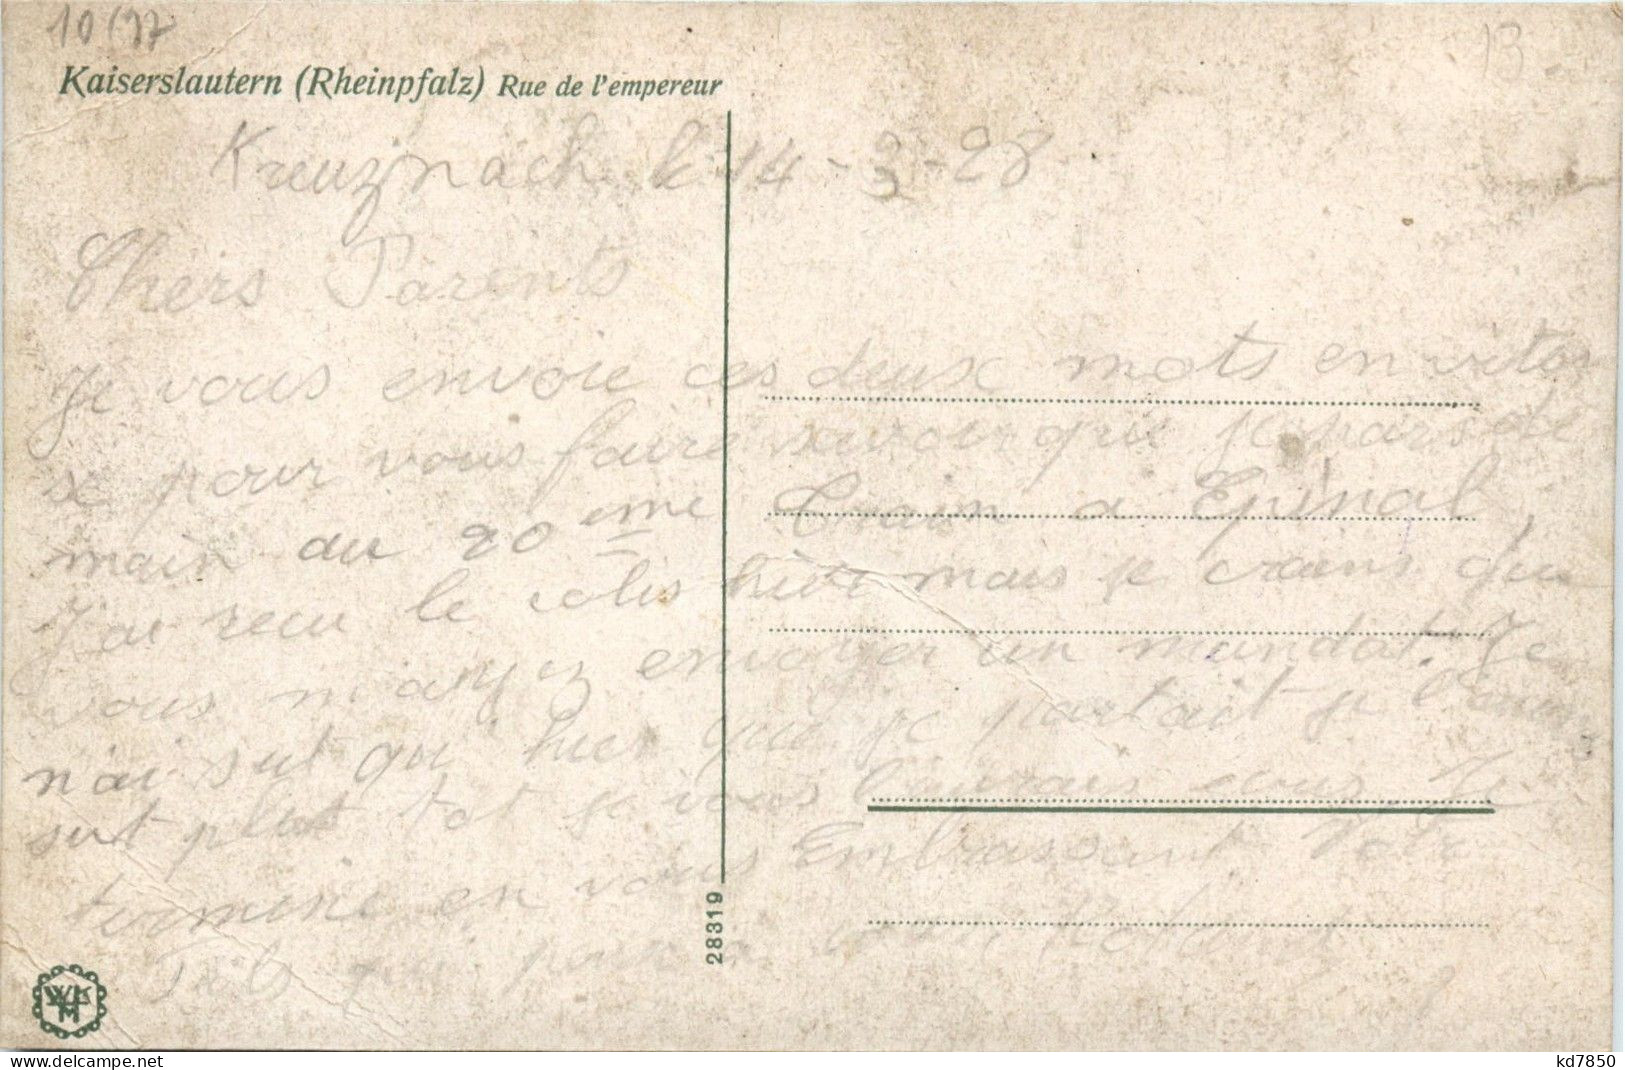 10/97
13
Kaiserslautern (Rheinpfalz) Rue de l'empereur
Kreuznach le 14-3-28
Chers Parents
Je vous envoie ces deux mots en vites
se pour vous faire savoir que je pars de
main au 20eme Train a Epinal,
J'ai recu le colis hier mais je crains que
vous m'ayez envoyer un mandat. Je
n'ai sut qu'hier que je partait je l'aurais
sut plut tot je vous l'aurais ecrit. Je
termine en vous Embrassant Votre
Fils qui pense a
28319
WHK M
delcampe.net
kd7850